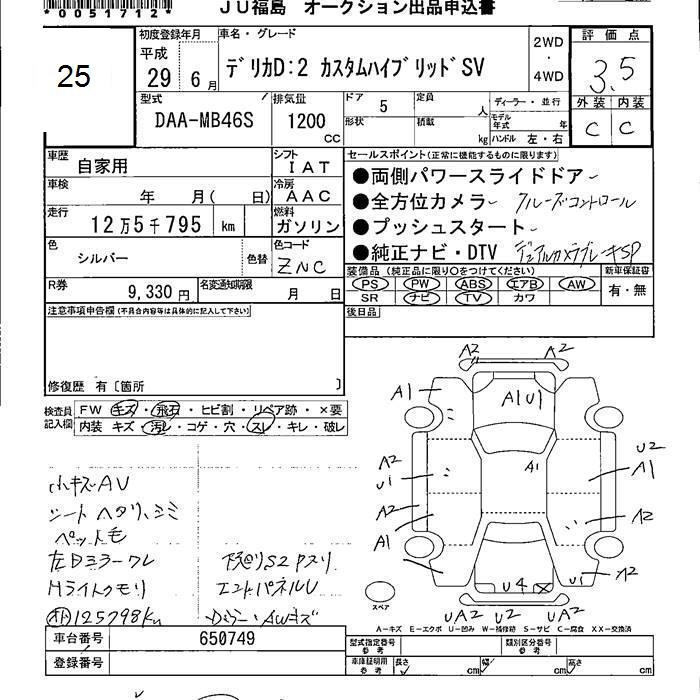 JU福島 オークション出品申込書
*0051712*
25
初度登録年月
平成
29 6月
車名・グレード
デリカD:2 カスタムハイブリッドSV
2WD
・
4WD
評価点
3.5
外装 内装
C C
型式
DAA-MB46S
排気量
1200
CC
ドア 5
形状
定員
人
積載
kg
ディーラー・並行
モデル年式 年
ハンドル 左・右
車歴 自家用
シフト IAT
車検 年 月( 日)
冷房 AAC
走行 12万5千795 km
燃料 ガソリン
色 シルバー
色替
色コード ZNC
R券 9,330円
名変通知期限 月 日
セールスポイント(正常に機能するものに限ります)
●両側パワースライドドア
●全方位カメラ クルーズコントロール
●プッシュスタート
●純正ナビ・DTV デュアルカメラブレーキSP
装備品(純正品に限り○をつけてください)
PS PW ABS エアB AW
SR ナビ TV カワ
新車保証書
有・無
後日品
注意事項申告欄(不具合内容等は具体的に記入して下さい)
修復歴 有〔箇所 〕
検査員記入欄
FW キズ・飛石・ヒビ割・リペア跡・×要
内装 キズ・汚レ・コゲ・穴・スレ・キレ・破レ
小キズAU
シートヘタリ、シミ
ペット毛
左Dミラーワレ
Hライトクモリ
125798km
下廻りS2 Pスリ
エンドパネルU
Dミラー・AWキズ
A2 A2
A1
A1U1
A2
U1
A1
U2
A1
A2
A1
A2
U4 X
U1
A2
UA2 U2 UA2
スペア
A-キズ E-エクボ U-凹み W-補修跡 S-サビ C-腐食 XX-交換済
車台番号 650749
登録番号
型式指定番号 参考
類別区分番号 参考
車庫証明用 参考
長さ cm
幅 cm
高さ cm